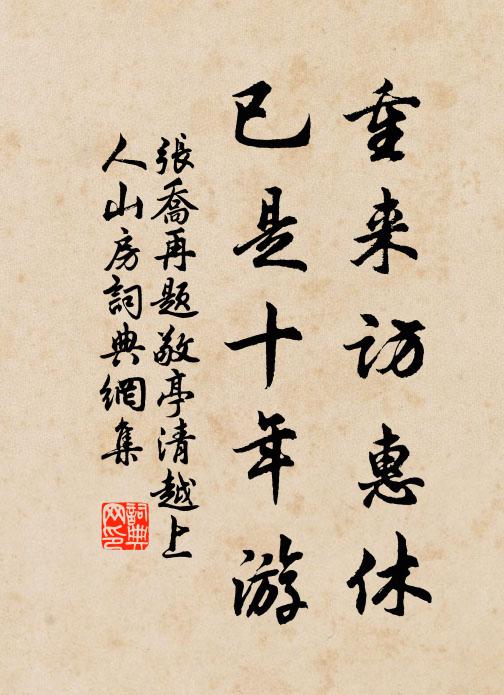 重来访惠休
已是十年游
張喬再题敬亭清越上
人山房詞典網集
詞典
网印